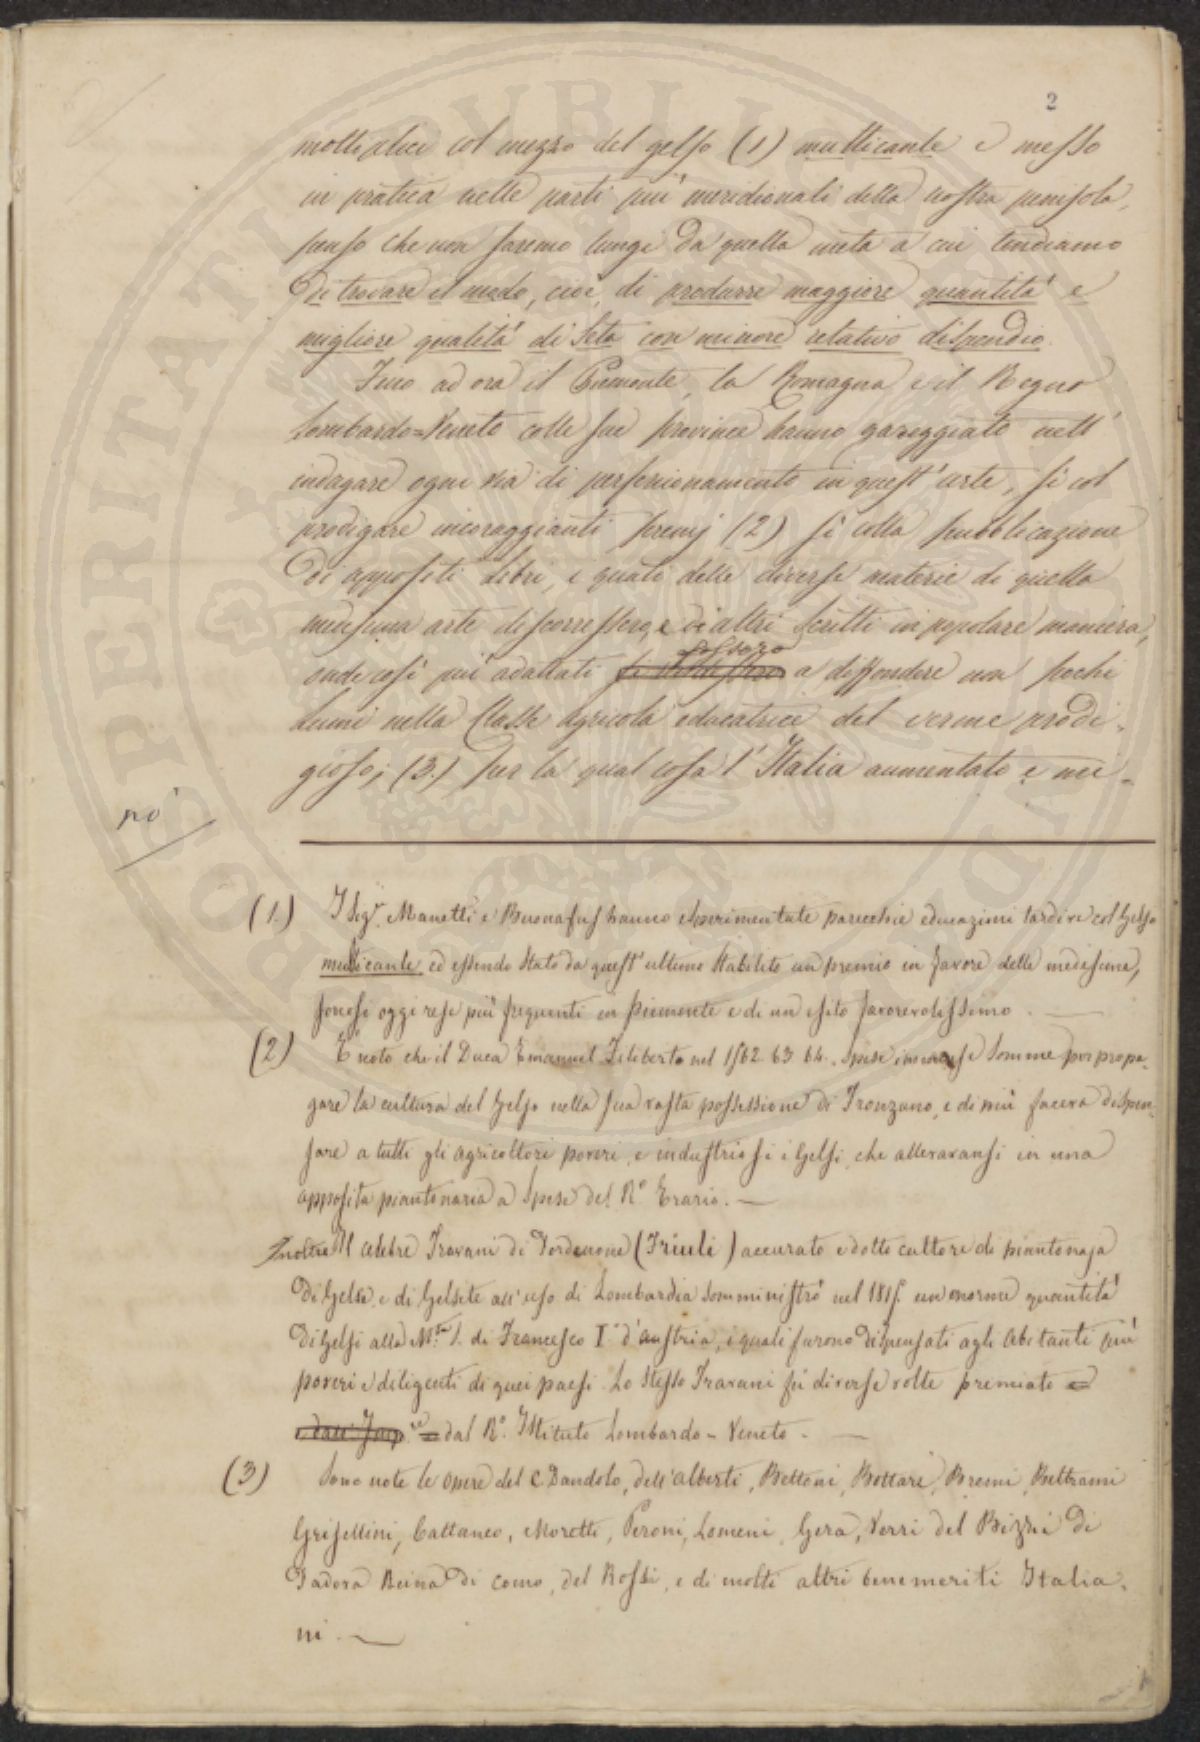 2
moltiplici col mezzo del gelso (1) multicaule e messo
in pratica nelle parti più meridionali della nostra penisola,
penso che non saremo lungi da quella meta a cui tendiamo
di trovare il modo, cioè, di produrre maggiore quantità e
migliore qualità di Seta con minore relativo dispendio.
Sino ad ora il Piemonte, la Romagna e il Regno
Lombardo=Veneto colle sue provincie hanno gareggiato nell'
indagare ogni via di perfezionamento in quest'arte, sì col
prodigare incoraggianti premj (2) sì colla pubblicazione
di appositi libri, i quali delle diverse materie di quella
medesima arte discorressero, e di altri scritti in popolare maniera,
fossero
onde così più adattati a diffondere non pochi
lumi nella Classe agricola educatrice del verme prodi-
gioso; (3.) per la qual cosa l'Italia aumentato e mi-
no
(1.) I Sigr. Manetti e Buonafus hanno esperimentate parecchie educazioni tardive col Gelso
multicaule ed essendo stato da quest'ultimo stabilito un premio in favore delle medesime,
sonosi oggi rese più frequenti in Piemonte e di un esito favorevolissimo.
(2) È noto che il Duca Emanuel Filiberto nel 1562. 63 64. spese immense somme per propa-
gare la cultura del Gelso nella sua vasta possessione di Tronzano, e di più faceva dispen-
sare a tutti gli agricoltori poveri, e industriosi i Gelsi, che allevavansi in una
apposita piantonaria a Spese del R.o Erario. —
Inoltre Il celebre Travani di Pordenone (Friuli) accurato e dotto cultore di piantonaja
di Gelsi, e di Gelsete all'uso di Lombardia somministrò nel 1815. un enorme quantità
di Gelsi alla M.tà S. di Francesco I.o d'Austria, i quali furono dispensati agli abitanti più
poveri e diligenti di quei paesi. Lo stesso Travani fu diverse volte premiato
dal R.o Istituto Lombardo-Veneto. —
(3) Sono note le opere del C. Dandolo, dell'Alberti, Bettoni, Bottari, Bremi, Beltrami
Grisellini, Cattaneo, Moretti, Peroni, Lomeni, Gera, Verri del Bizzi di
Padova Reina di Como, del Rossi, e di molti altri benemeriti Italia-
ni. —